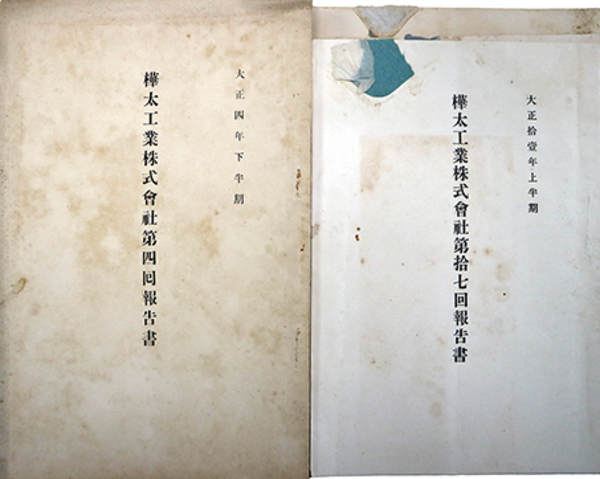 大正四年下半期
樺太工業株式會社第四囘報告書
大正拾壹年上半期
樺太工業株式會社第拾七回報告書